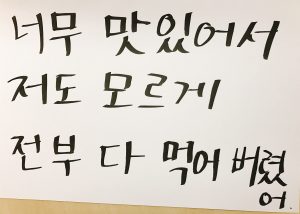 너무 맛있어서
저도 모르게
전부 다 먹어 버렸
어.